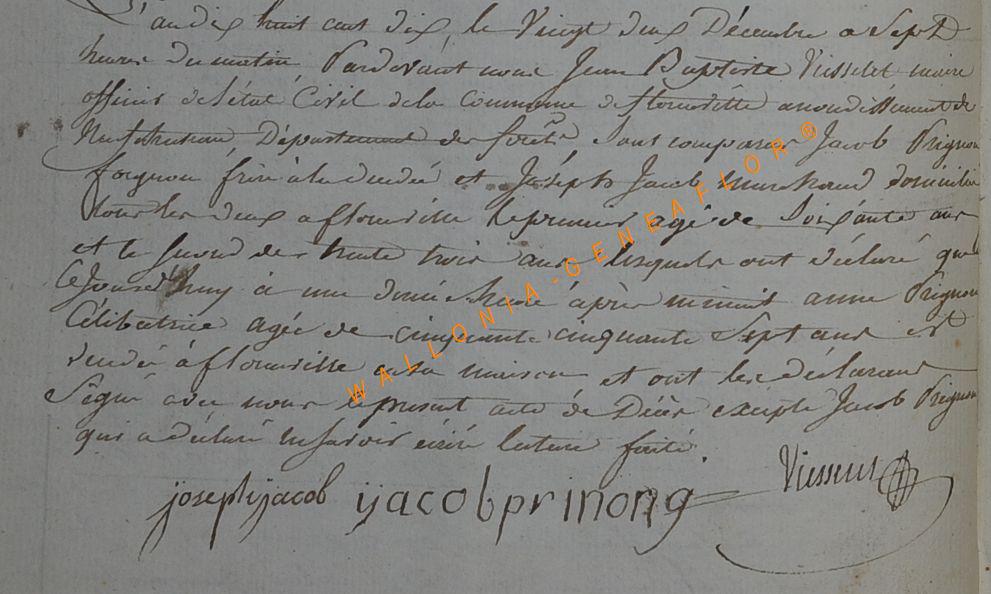 L'an dix huit cent dix, le Vingt deux Décembre a Sept
heures du matin Pardevant nous Jean Baptiste maire
officier de l'état Civil de la Commune de florenville arrondissement de
Neufchateau Département des forêts Sont comparus Jacob Prignon
frère à la et Joseph Jacob Marchand domicilié
tous les deux a florenville le premier agé de Soixante ans
et le second de trente trois ans lesquels ont déclaré que
Cejourd'huy à une demie heure après minuit anne Prignon
Célibatrice agée de cinquante cinquante Sept ans est
à florenville en sa maison et ont les déclarans
Signé avec nous le présent acte de Décès excepté Jacob Prignon
qui a déclaré ne savoir écrire lecture faite.
joseph jacob ijacobprinong
WALLONIA-GENEAFLOR®